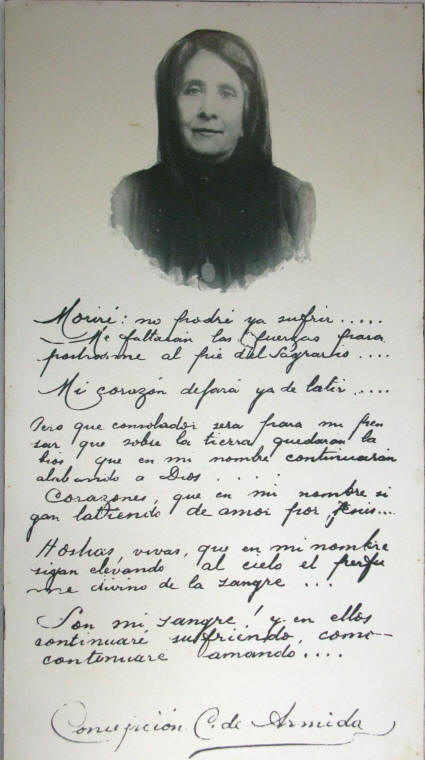 Moriré: no podré ya sufrir.....
Me faltarán las fuerzas para
postrarme al pié del Sagrario....
Mi corazón dejará ya de latir....
Pero que consolador sera para mi pen
sar que sobre la tierra quedarán la
bios que en mi nombre continuarán
alabando a Dios . . . .
Corazones, que en mi nombre si
gan latiendo de amor por Jesus....
Hostias, vivas, que en mi nombre
sigan elevando al cielo el perfu
me divino de la sangre ...
Son mi sangre! y en ellos
continuaré sufriendo, como
continuare amando....
Concepción C. de Armida